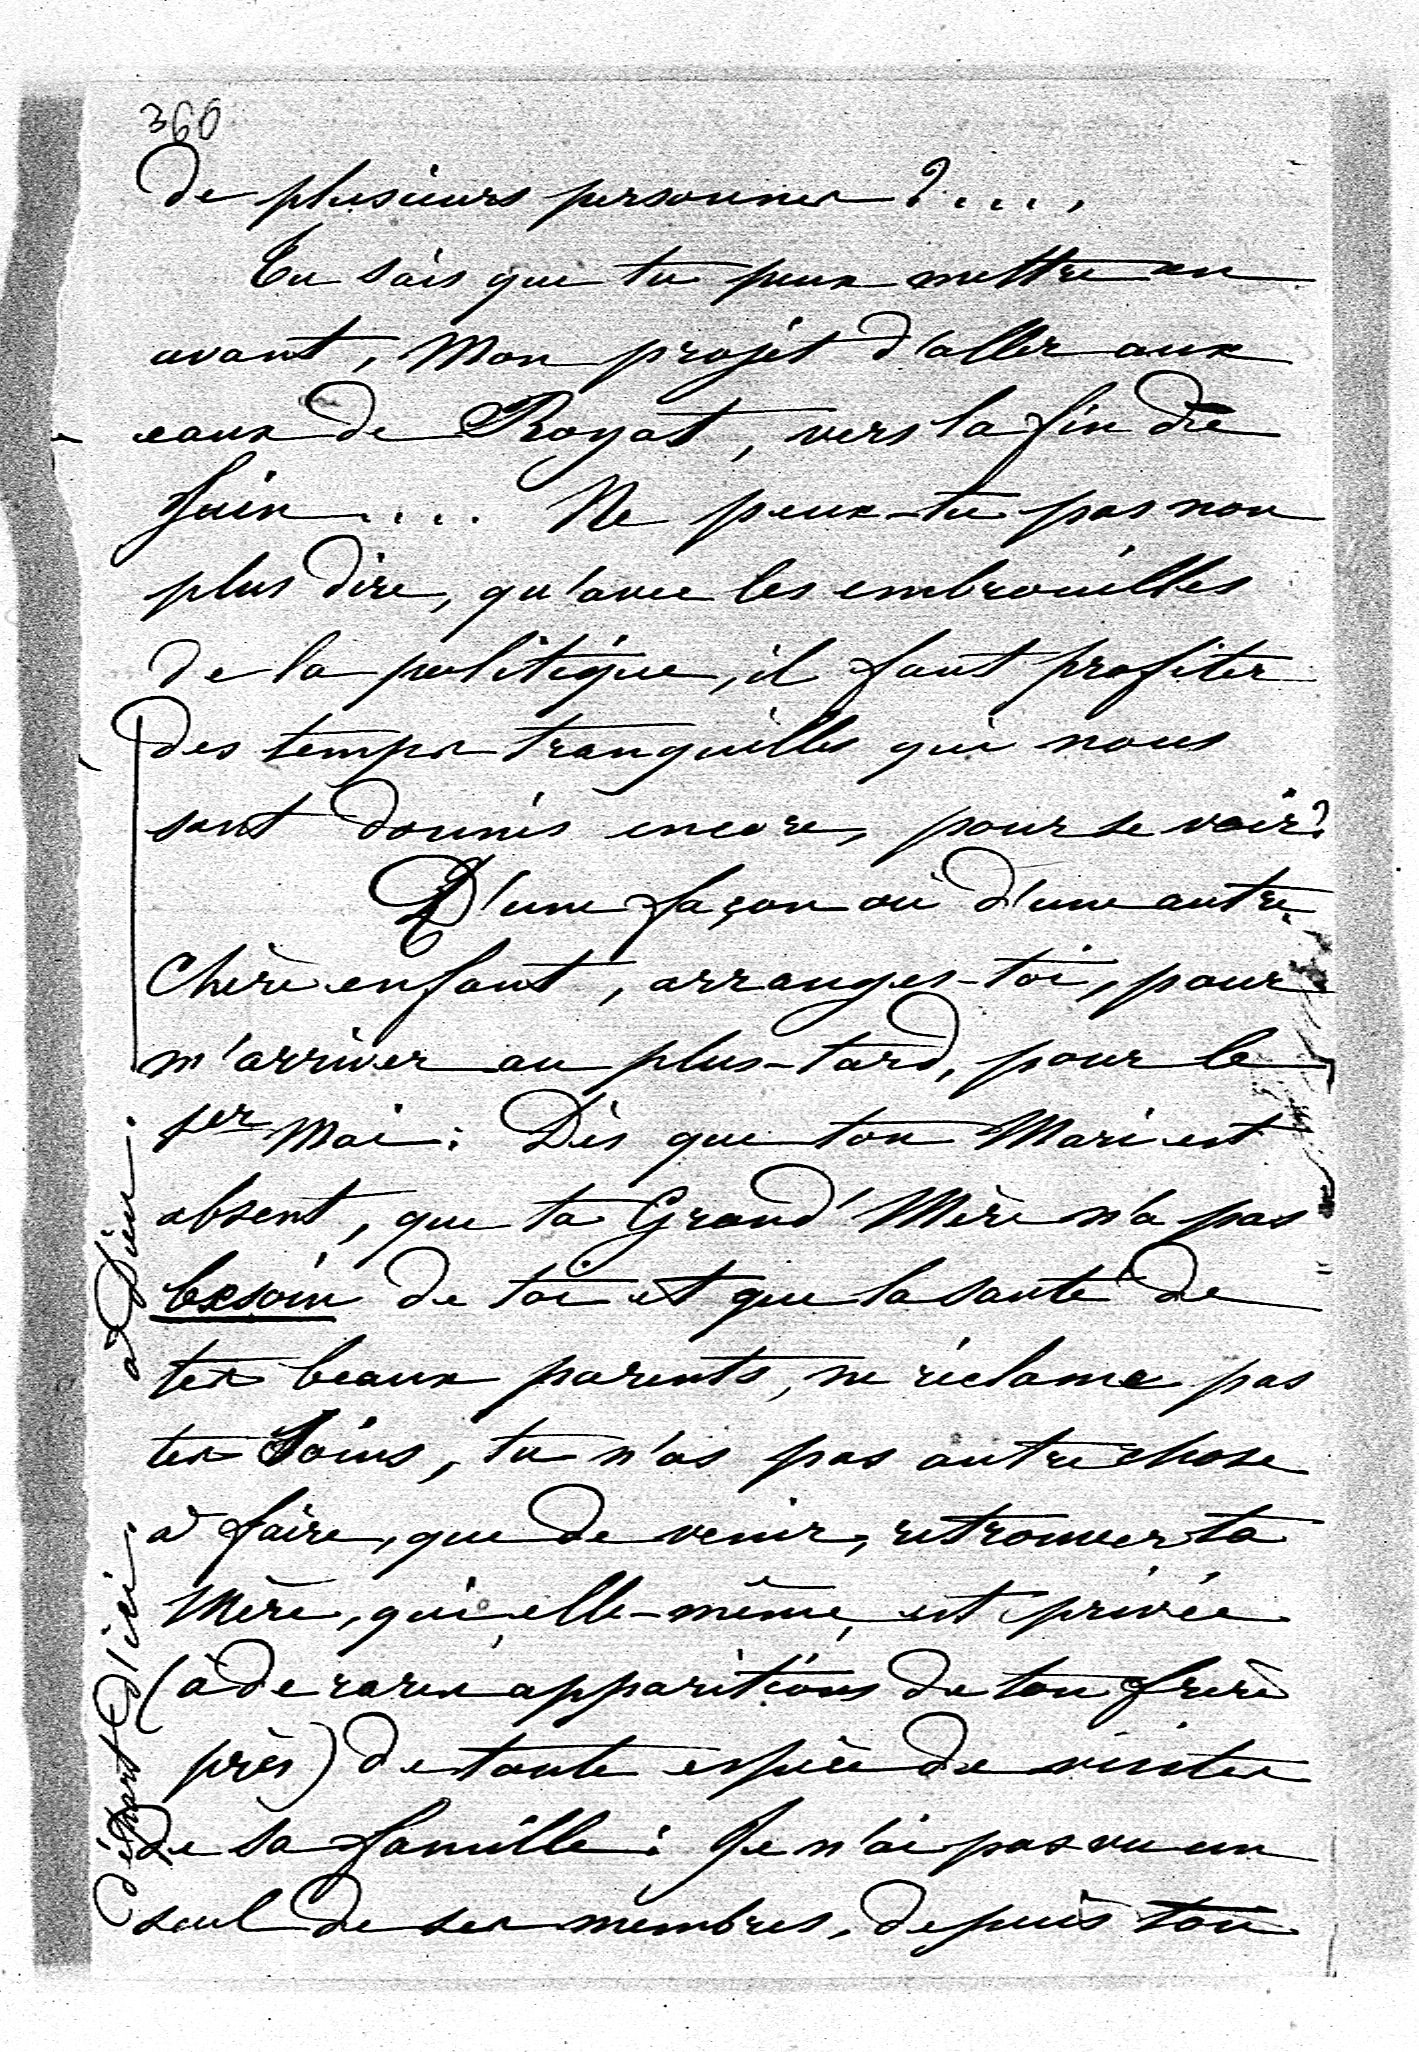 360
de plusieurs personnes ?....
Tu sais que tu peux mettre en
avant, mon projet d'aller aux
eaux de Royat, vers la fin de
Juin .... Ne peux-tu pas non
plus dire, qu'avec les embrouilles
de la politique, il faut profiter
des temps tranquilles qui nous
sont donnés encore, pour se voir?
D'une façon ou d'une autre,
Chère enfant, arranges-toi, pour
m'arriver au plus-tard, pour le
1er Mai: Dès que ton Mari est
absent, que ta Grand'Mère n'a pas
besoin de toi et que la santé de
tes beaux parents, ne réclame pas
tes soins, tu n'as pas autre chose
à faire, que de venir, retrouver ta
Mère, qui elle-même, est privée
(à de rares apparitions de ton frère
près) de toute espèce de visites
de sa famille: Je n'ai pas vu un
seul de ses membres, depuis ton
départ d'ici.
à Dieu.